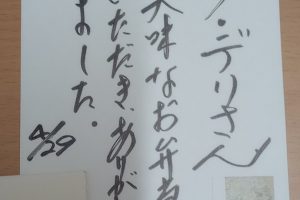 ラ・デリさん
美味なお弁当
いただき、ありが
ました。
4/29